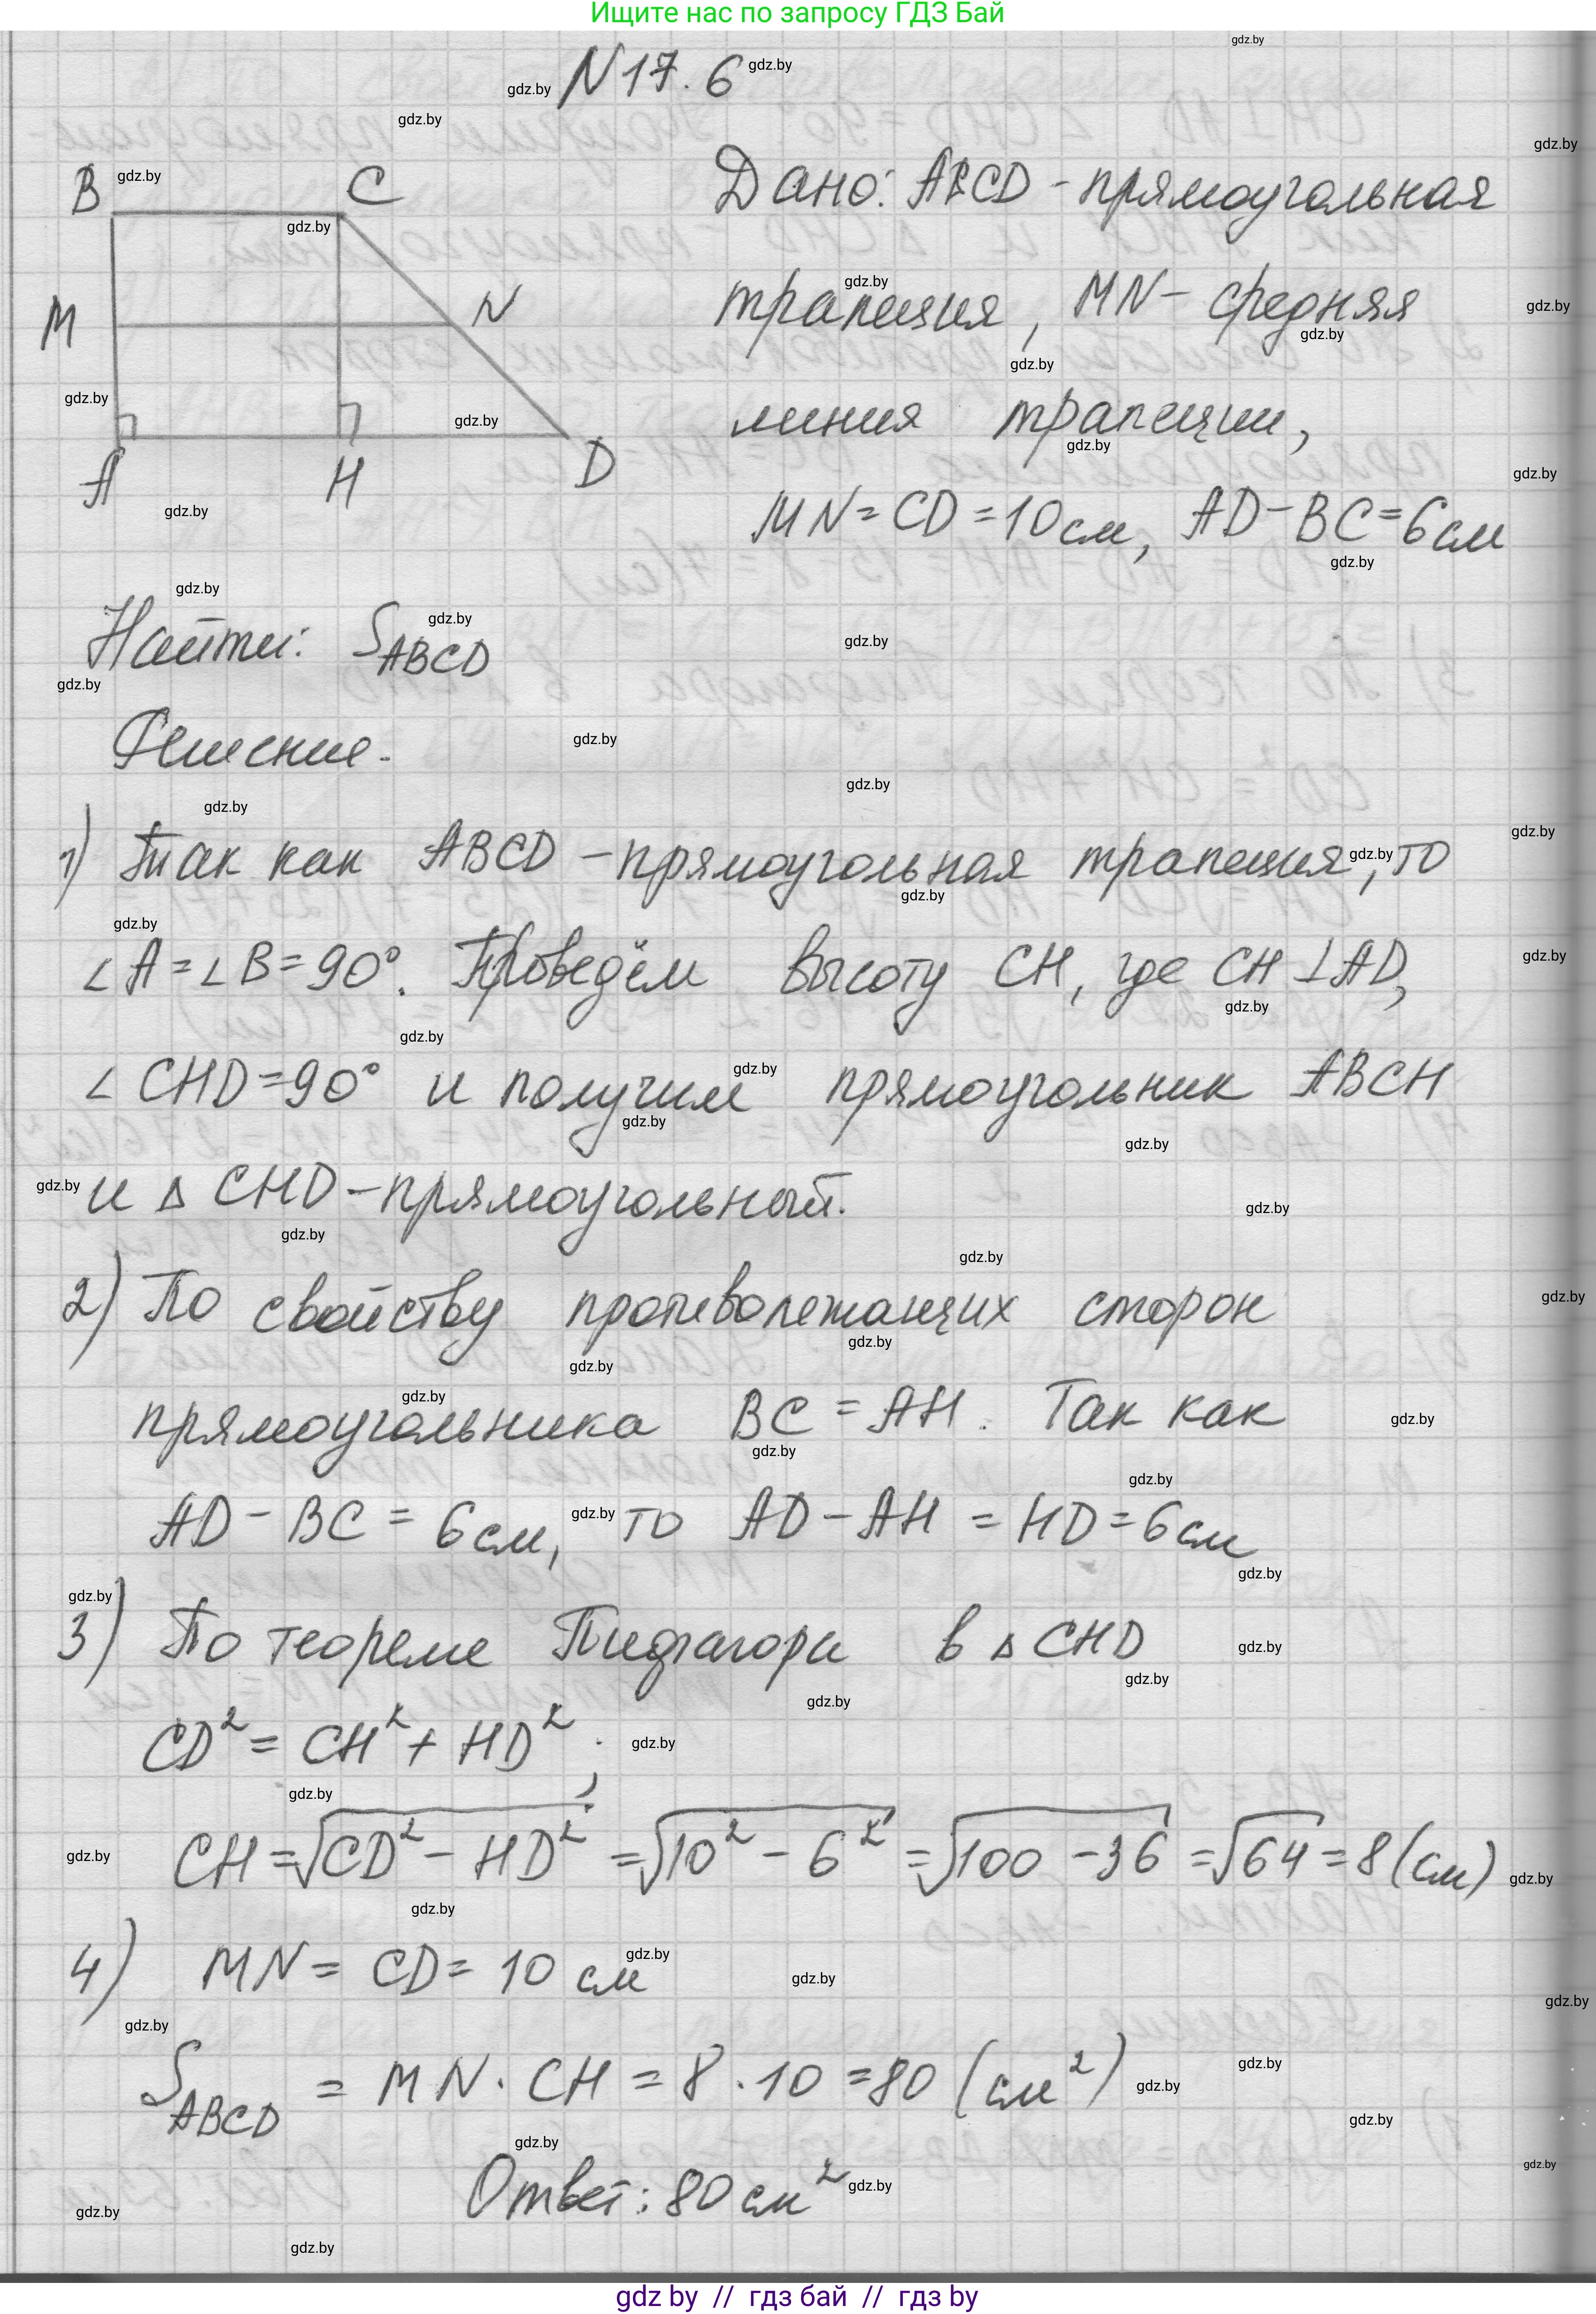 Ищите нас по запросу ГДЗ Бай
N 17.6
B C M N A H D
Дано: ABCD - прямоугольная
трапеция, MN - средняя
линия трапеции,
MN = CD = 10 см, AD - BC = 6 см
Найти: S_ABCD
Решение.
1) Так как ABCD - прямоугольная трапеция, то
∠A = ∠B = 90°. Проведём высоту CH, где CH ⊥ AD,
∠CHD = 90° и получим прямоугольник ABCH
и △ CHD - прямоугольный.
2) По свойству противолежащих сторон
прямоугольника BC = AH. Так как
AD - BC = 6 см, то AD - AH = HD = 6 см
3) По теореме Пифагора в △ CHD
CD² = CH² + HD²;
CH = √(CD² - HD²) = √(10² - 6²) = √(100 - 36) = √64 = 8 (см)
4) MN = CD = 10 см
S_ABCD = MN · CH = 8 · 10 = 80 (см²)
Ответ: 80 см²
gdz by // гдз бай // гдз by